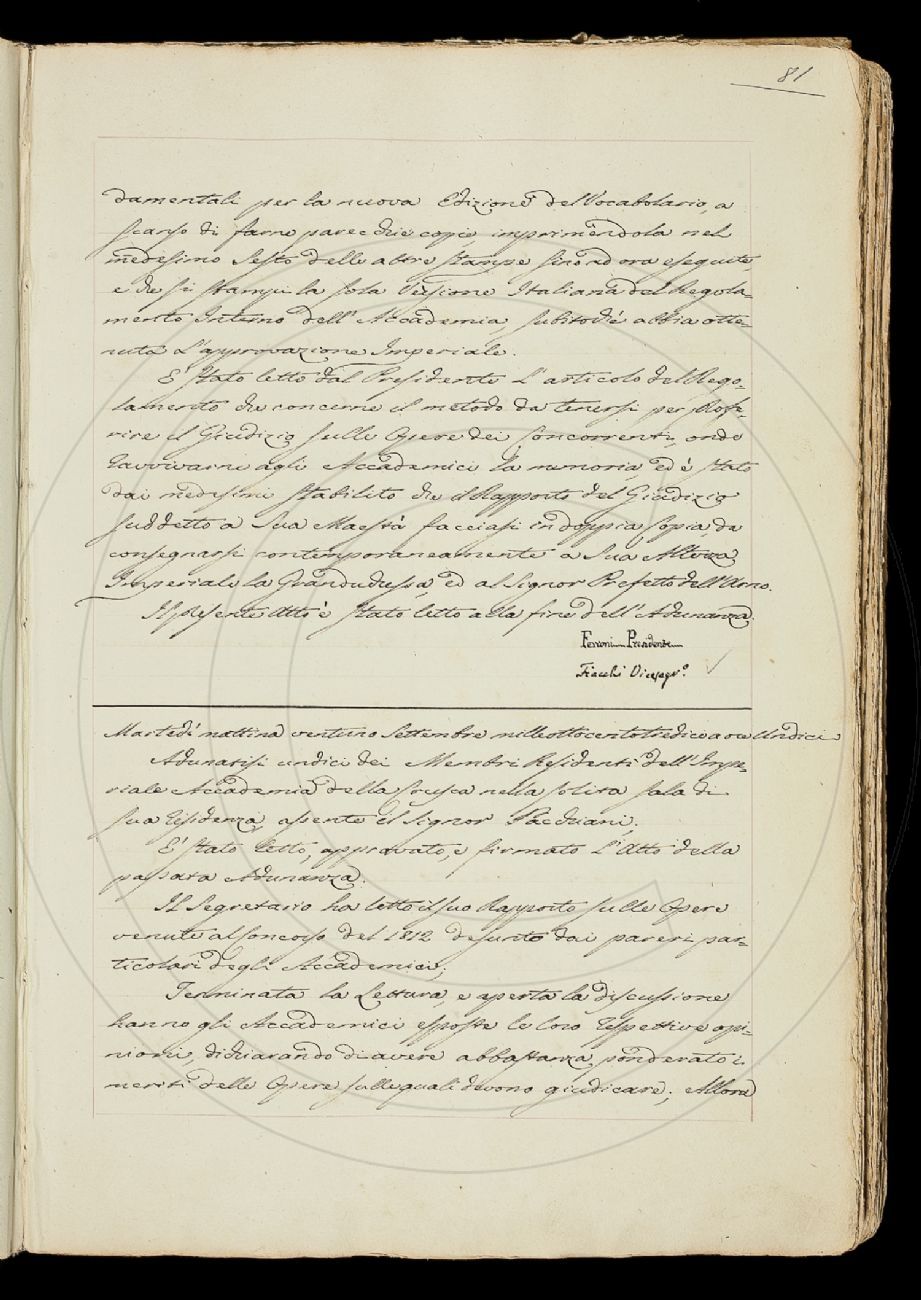 81
damentali per la nuova Edizione del Vocabolario, a
scarso di farne parecchie copie, imprimendola nel
medesimo sesto delle altre stampe sino ad ora eseguite,
e che si stampi la sola Versione Italiana del Regola-
mento Interno dell'Accademia, subito ch'è abbia otte-
nuta l'approvazione Imperiale.
E' stato letto dal Presidente l'articolo del Rego-
lamento che concerne il metodo da tenersi per Prof-
rire il Giudizio sulle Opere dei Concorrenti, onde
ravvivarne agli Accademici la memoria, ed è stato
dai medesimi stabilito che il Rapporto del Giudizio
suddetto a Sua Maestà facciasi in doppia Copia, da
consegnarsi contemporaneamente a Sua Altezza
Imperiale la Granduchessa, ed al Signor Prefetto dell'Arno.
Il presente Atto è stato letto alla fine dell'Adunanza.
Ferroni Presidente
Fiacchi Vicesegr.º
Martedì mattina ventuno Settembre milleottocentotredici a ore Undici
Adunatisi undici dei Membri Residenti dell'Impe-
riale Accademia della Crusca nella solita sala di
sua Residenza, assente il Signor Pacchiani,
E' stato letto, approvato, e firmato l'Atto della
passata Adunanza.
Il Segretario ha letto il suo Rapporto sulle Opere
venute al Concorso del 1812 desunto dai pareri par-
ticolari degli Accademici;
Terminata la Lettura, e aperta la discussione
hanno gli Accademici esposte le loro respettive opi-
nioni, dichiarando di avere abbastanza ponderato i
meriti delle Opere sulle quali devono giudicare; Allora